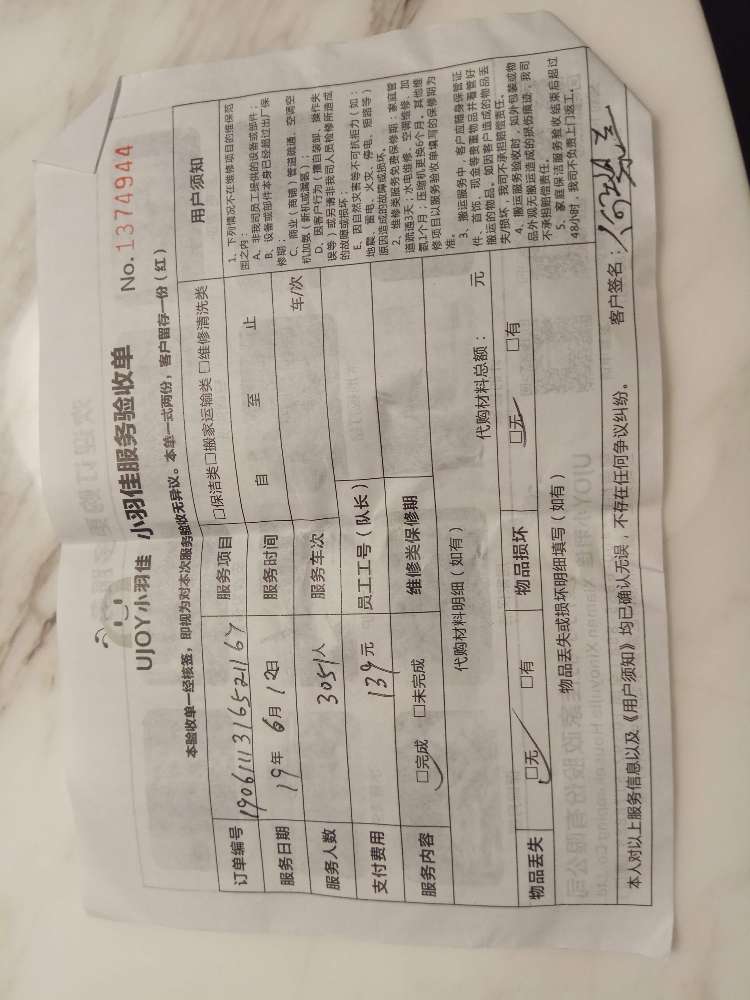 UJOY小羽佳 小羽佳服务验收单 No.1374944
本验收单一经核签，即视为对本次服务验收无异议。本单一式两份，客户留存一份（红）
订单编号 190611131652167 服务项目 □保洁类□搬家运输类 □维修清洗类
服务日期 19年 6月 12日 服务时间 自 至 止
服务人数 3051人 服务车次 车/次
支付费用 139元 员工工号（队长）
服务内容 □完成 □未完成 维修类保修期
代购材料明细（如有） 代购材料总额： 元
物品丢失 □无 □有 物品损坏 □无 □有
物品丢失或损坏明细填写（如有）
用户须知
1、下列情况不在维修项目的维保范
围之内：
A、非我司员工提供的设备或部件；
B、设备或部件本身已经超过出厂保
修期；
C、商业（商铺）管道疏通、空调空
机加氨（新机或漏氨）；
D、因客户行为（擅自装卸、操作失
误等）或另请非我司人员检修所造成
的故障或损坏；
E、因自然灾害等不可抗拒力（如：
地震、雷电、火灾、停电、短路等）
原因造成的故障或损坏。
2、维修类服务免费保修期：家庭管
道疏通3天；水电维修、空调维修、加
氨1个月；压缩机更换6个月。其他维
修项目以服务验收单填写的保修期为
准。
3、搬运服务中，客户应随身保管证
件、首饰、现金等贵重物品并看管好
搬运的物品，如因客户造成的物品丢
失/损坏，我司不承担赔偿责任。
4、搬运服务验收时，如外包装或物
品外观无搬运造成的损伤痕迹，我司
不承担赔偿责任。
5、家庭保洁服务验收结束后超过
48小时，我司不负责上门返工。
本人对以上服务信息以及《用户须知》均已确认无误，不存在任何争议纠纷。 客户签名：